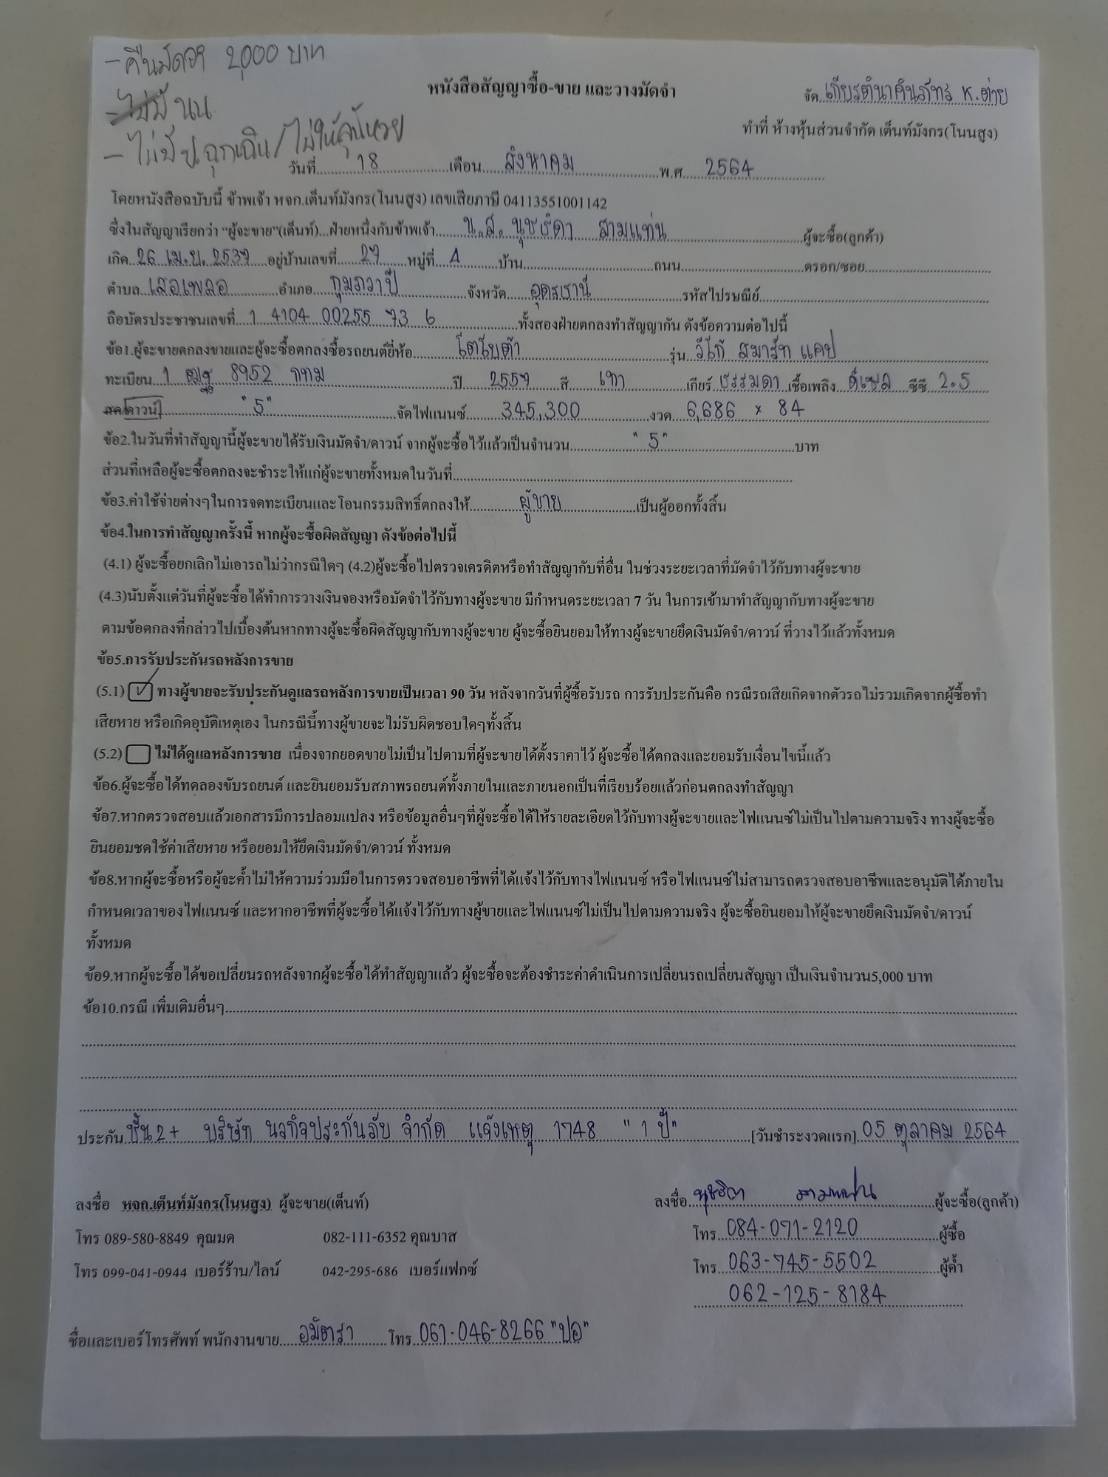 - คืนมัดจำ 2,000 บาท
หนังสือสัญญาซื้อ-ขาย และวางมัดจำ
จัด เกียรตินาคินภัทร K.ต่าย
- ไม่มี นน
ทำที่ ห้างหุ้นส่วนจำกัด เต็นท์มังกร(โนนสูง)
- ไม่มี ปุ่มฉุกเฉิน / ไม่ให้ลุ้นหวย
วันที่ 18 เดือน สิงหาคม พ.ศ. 2564
โดยหนังสือฉบับนี้ ข้าพเจ้า หจก.เต็นท์มังกร(โนนสูง) เลขเสียภาษี 04113551001142
ซึ่งในสัญญาเรียกว่า "ผู้จะขาย"(เต็นท์)...ฝ่ายหนึ่งกับข้าพเจ้า น.ส. นุชธิดา สามแท่น ผู้จะซื้อ(ลูกค้า)
เกิด 26 เม.ย. 2539 อยู่บ้านเลขที่ 29 หมู่ที่ 4 บ้าน ถนน ตรอก/ซอย
ตำบล เสอเพลอ อำเภอ กุมภวาปี จังหวัด อุดรธานี รหัสไปรษณีย์
ถือบัตรประชาชนเลขที่ 1 4104 00255 93 6 ทั้งสองฝ่ายตกลงทำสัญญากัน ดังข้อความต่อไปนี้
ข้อ1.ผู้จะขายตกลงขายและผู้จะซื้อตกลงซื้อรถยนต์ยี่ห้อ โตโยต้า รุ่น วีโก้ สมาร์ท แคป
ทะเบียน 1 ฒฐ 8952 กทม ปี 2559 สี เทา เกียร์ ธรรมดา เชื้อเพลิง ดีเซล ซีซี 2.5
สด/ดาวน์ "5" จัดไฟแนนซ์ 345,300 งวด 6,686 × 84
ข้อ2.ในวันที่ทำสัญญานี้ผู้จะขายได้รับเงินมัดจำ/ดาวน์ จากผู้จะซื้อไว้แล้วเป็นจำนวน "5" บาท
ส่วนที่เหลือผู้จะซื้อตกลงจะชำระให้แก่ผู้จะขายทั้งหมดในวันที่
ข้อ3.ค่าใช้จ่ายต่างๆในการจดทะเบียนและโอนกรรมสิทธิ์ตกลงให้ ผู้ขาย เป็นผู้ออกทั้งสิ้น
ข้อ4.ในการทำสัญญาครั้งนี้ หากผู้จะซื้อผิดสัญญา ดังข้อต่อไปนี้
(4.1) ผู้จะซื้อยกเลิกไม่เอารถไม่ว่ากรณีใดๆ (4.2)ผู้จะซื้อไปตรวจเครดิตหรือทำสัญญากับที่อื่น ในช่วงระยะเวลาที่มัดจำไว้กับทางผู้จะขาย
(4.3)นับตั้งแต่วันที่ผู้จะซื้อได้ทำการวางเงินจองหรือมัดจำไว้กับทางผู้จะขาย มีกำหนดระยะเวลา 7 วัน ในการเข้ามาทำสัญญากับทางผู้จะขาย
ตามข้อตกลงที่กล่าวไปเบื้องต้นหากทางผู้จะซื้อผิดสัญญากับทางผู้จะขาย ผู้จะซื้อยินยอมให้ทางผู้จะขายยึดเงินมัดจำ/ดาวน์ ที่วางไว้แล้วทั้งหมด
ข้อ5.การรับประกันรถหลังการขาย
(5.1) ☑ ทางผู้ขายจะรับประกันดูแลรถหลังการขายเป็นเวลา 90 วัน หลังจากวันที่ผู้ซื้อรับรถ การรับประกันคือ กรณีรถเสียเกิดจากตัวรถไม่รวมเกิดจากผู้ซื้อทำ
เสียหาย หรือเกิดอุบัติเหตุเอง ในกรณีนี้ทางผู้ขายจะไม่รับผิดชอบใดๆทั้งสิ้น
(5.2) ☐ ไม่ได้ดูแลหลังการขาย เนื่องจากยอดขายไม่เป็นไปตามที่ผู้จะขายได้ตั้งราคาไว้ ผู้จะซื้อได้ตกลงและยอมรับเงื่อนไขนี้แล้ว
ข้อ6.ผู้จะซื้อได้ทดลองขับรถยนต์ และยินยอมรับสภาพรถยนต์ทั้งภายในและภายนอกเป็นที่เรียบร้อยแล้วก่อนตกลงทำสัญญา
ข้อ7.หากตรวจสอบแล้วเอกสารมีการปลอมแปลง หรือข้อมูลอื่นๆที่ผู้จะซื้อได้ให้รายละเอียดไว้กับทางผู้จะขายและไฟแนนซ์ไม่เป็นไปตามความจริง ทางผู้จะซื้อ
ยินยอมชดใช้ค่าเสียหาย หรือยอมให้ยึดเงินมัดจำ/ดาวน์ ทั้งหมด
ข้อ8.หากผู้จะซื้อหรือผู้จะค้ำไม่ให้ความร่วมมือในการตรวจสอบอาชีพที่ได้แจ้งไว้กับทางไฟแนนซ์ หรือไฟแนนซ์ไม่สามารถตรวจสอบอาชีพและอนุมัติได้ภายใน
กำหนดเวลาของไฟแนนซ์ และหากอาชีพที่ผู้จะซื้อได้แจ้งไว้กับทางผู้ขายและไฟแนนซ์ไม่เป็นไปตามความจริง ผู้จะซื้อยินยอมให้ผู้จะขายยึดเงินมัดจำ/ดาวน์
ทั้งหมด
ข้อ9.หากผู้จะซื้อได้ขอเปลี่ยนรถหลังจากผู้จะซื้อได้ทำสัญญาแล้ว ผู้จะซื้อจะต้องชำระค่าดำเนินการเปลี่ยนรถเปลี่ยนสัญญา เป็นเงินจำนวน5,000 บาท
ข้อ10.กรณี เพิ่มเติมอื่นๆ
ประกัน ชั้น 2+ บริษัท นวกิจประกันภัย จำกัด แจ้งเหตุ 1748 "1 ปี" [วันชำระงวดแรก] 05 ตุลาคม 2564
ลงชื่อ หจก.เต็นท์มังกร(โนนสูง) ผู้จะขาย(เต็นท์)
ลงชื่อ นุชธิดา สามแท่น ผู้จะซื้อ(ลูกค้า)
โทร 089-580-8849 คุณมด 082-111-6352 คุณบาส
โทร 084-091-2120 ผู้ซื้อ
โทร 099-041-0944 เบอร์ร้าน/ไลน์ 042-295-686 เบอร์แฟกซ์
โทร 063-745-5502 ผู้ค้ำ
062-125-8184
ชื่อและเบอร์โทรศัพท์ พนักงานขาย อมิตรา โทร 061-046-8266 "ปอ"